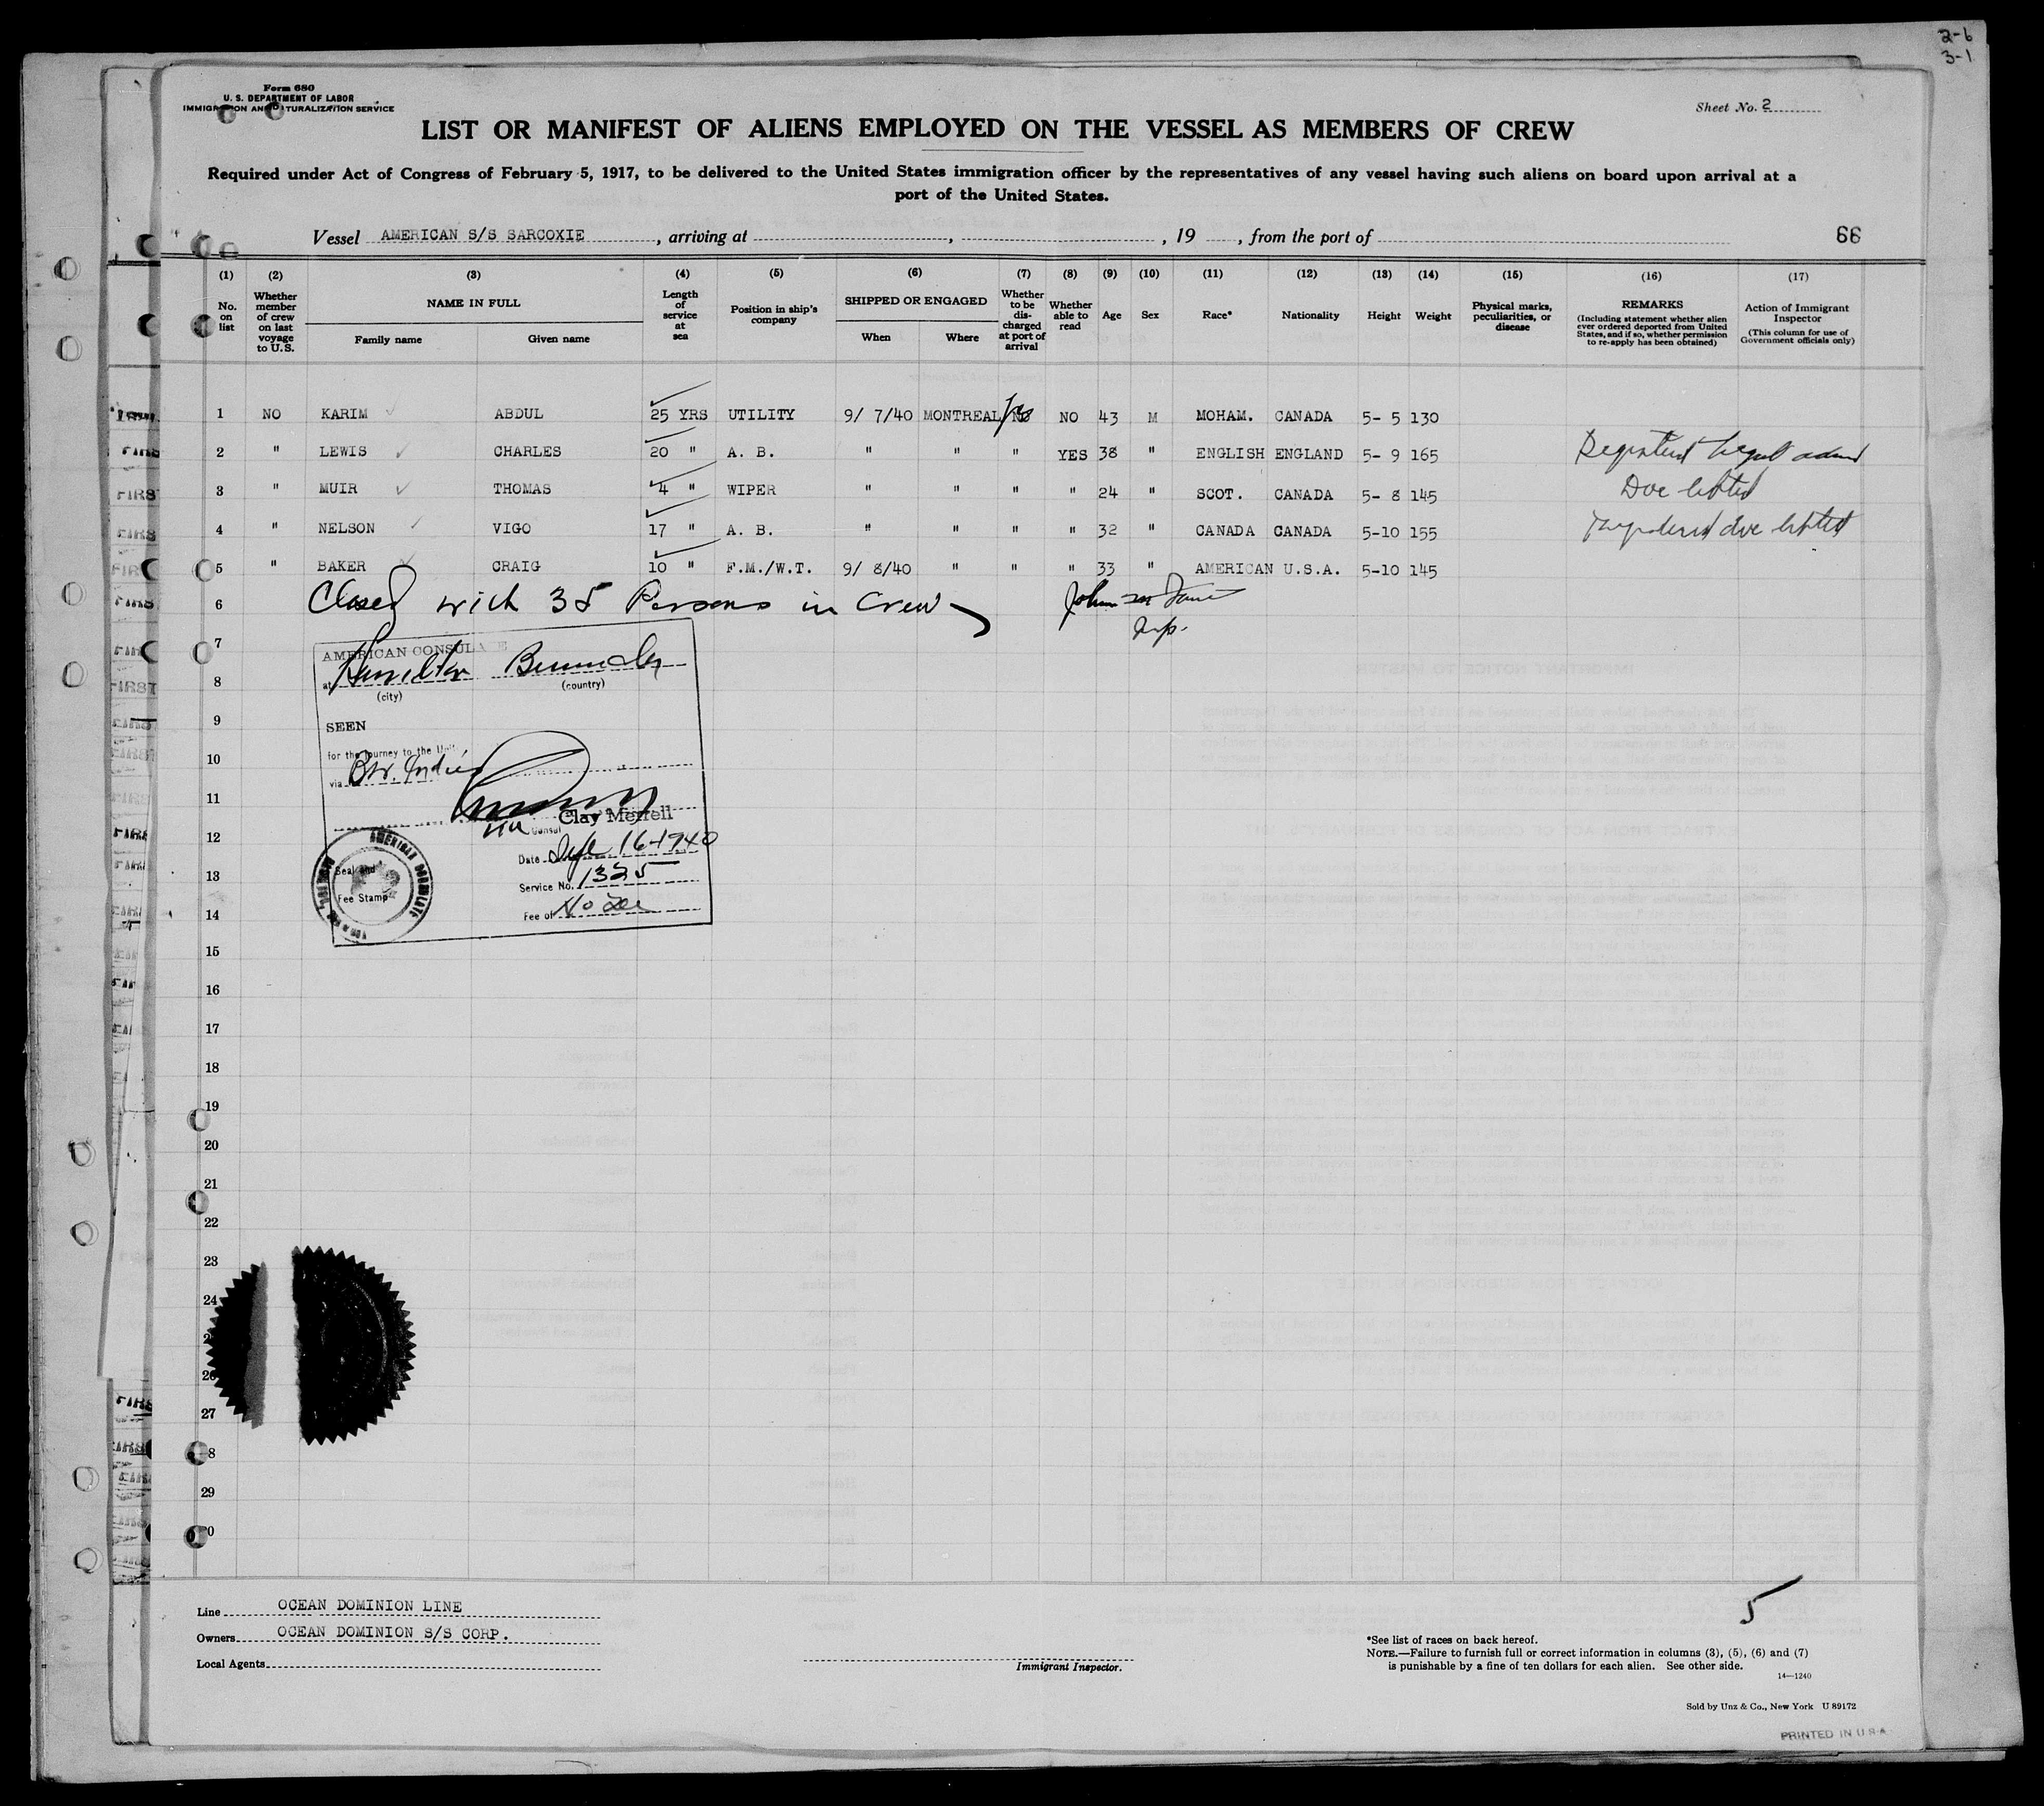 2-6
3-1
Form 680
U. S. DEPARTMENT OF LABOR
IMMIGRATION AND NATURALIZATION SERVICE
Sheet No. 2
LIST OR MANIFEST OF ALIENS EMPLOYED ON THE VESSEL AS MEMBERS OF CREW
Required under Act of Congress of February 5, 1917, to be delivered to the United States immigration officer by the representatives of any vessel having such aliens on board upon arrival at a
port of the United States.
Vessel AMERICAN S/S SARCOXIE, arriving at , , 19 , from the port of
66
(1) (2) (3) (4) (5) (6) (7) (8) (9) (10) (11) (12) (13) (14) (15) (16) (17)
No. on list
Whether member of crew on last voyage to U.S.
NAME IN FULL
Family name
Given name
Length of service at sea
Position in ship's company
SHIPPED OR ENGAGED
When
Where
Whether to be discharged at port of arrival
Whether able to read
Age
Sex
Race*
Nationality
Height
Weight
Physical marks, peculiarities, or disease
REMARKS
(Including statement whether alien ever ordered deported from United States, and if so, whether permission to re-apply has been obtained)
Action of Immigrant Inspector
(This column for use of Government officials only)
1 NO KARIM ABDUL 25 YRS UTILITY 9/ 7/40 MONTREAL NO 43 M MOHAM. CANADA 5- 5 130
2 " LEWIS CHARLES 20 " A. B. " " " YES 38 " ENGLISH ENGLAND 5- 9 165
3 " MUIR THOMAS 4 " WIPER " " " " 24 " SCOT. CANADA 5- 8 145
4 " NELSON VIGO 17 " A. B. " " " " 32 " CANADA CANADA 5-10 155
5 " BAKER CRAIG 10 " F.M./W.T. 9/ 8/40 " " " 33 " AMERICAN U.S.A. 5-10 145
6 Closed with 35 Persons in Crew John
Insp.
7
AMERICAN CONSULATE
at Hamilton Bermuda
8
(city) (country)
9
SEEN
10
for the journey to the
via Br. Indies
11
Clay Merrell
Consul
12
Date Sept 16-1940
13
Seal and
Service No. 1325
Fee Stamp
14
Fee of No fee
AMERICAN CONSULATE
15
16
17
18
19
20
21
22
23
24
26
27
8
29
0
5
Line OCEAN DOMINION LINE
Owners OCEAN DOMINION S/S CORP.
Local Agents
Immigrant Inspector.
*See list of races on back hereof.
NOTE.—Failure to furnish full or correct information in columns (3), (5), (6) and (7)
is punishable by a fine of ten dollars for each alien. See other side.
14—1240
Sold by Unz & Co., New York U 89172
PRINTED IN U S A